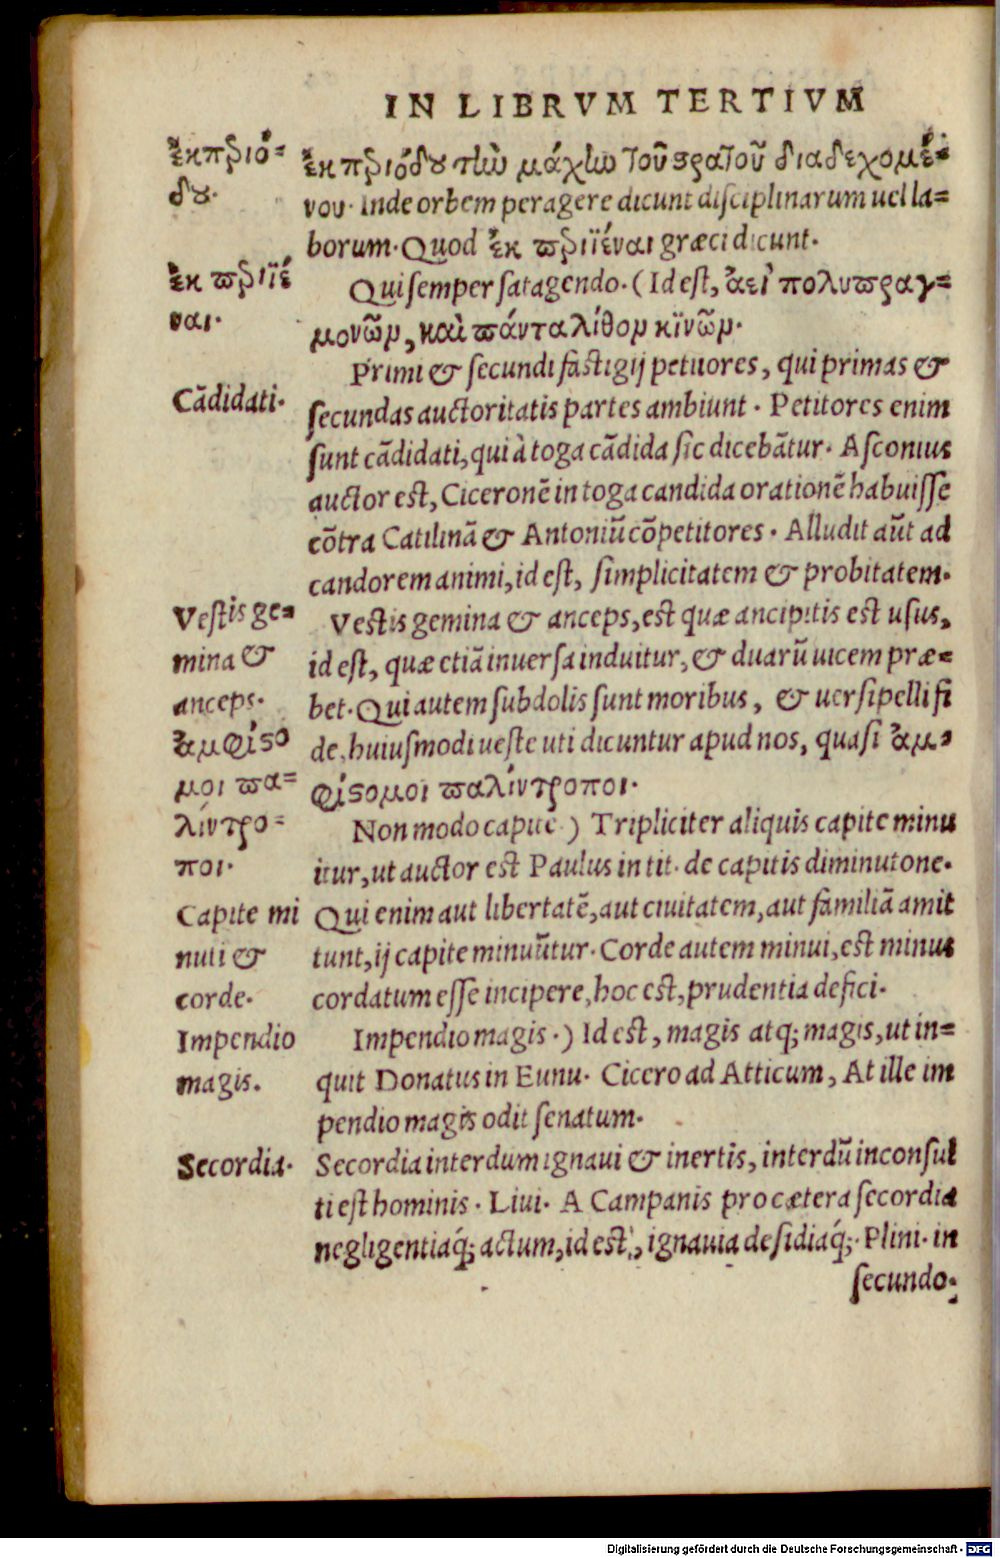 IN LIBRVM TERTIVM
ἐκπεριό=
δȣ·
ἐκ περιϊέ
ναι·
Cãdidati·
Vestis ge=
mina &
anceps·
ἀμφίϛο
μοι πα=
λίντρο=
ποι·
Capite mi
nuti &
corde·
Impendio
magis.
Secordia·
ἐκ περιόδȣ τὴν μάχην τοῦ ϛρατοῦ διαδεχομέ=
νου· Inde orbem peragere dicunt disciplinarum uel la=
borum· Quod ἐκ περιϊέναι græci dicunt.
Qui semper satagendo. (Id est, ἀεὶ πολυπραγ=
μονῶν, καὶ πάντα λίθον κϊνῶν·
Primi & secundi fastigij petitores, qui primas &
secundas auctoritatis partes ambiunt · Petitores enim
sunt cãdidati, qui à toga cãdida sic dicebãtur· Asconius
auctor est, Ciceronẽ in toga candida orationẽ habuisse
cõtra Catilinã & Antoniũ cõpetitores · Alludit aũt ad
candorem animi, id est, simplicitatem & probitatem·
Vestis gemina & anceps, est quæ ancipitis est usus,
id est, quæ etiã inuersa induitur, & duarũ uicem præ=
bet· Qui autem subdolis sunt moribus, & uersipelli fi
de, huiusmodi ueste uti dicuntur apud nos, quasi ἀμ=
φίϛομοι παλίντροποι·
Non modo capite ) Tripliciter aliquis capite minu
itur, ut auctor est Paulus in tit· de capitis diminutone·
Qui enim aut libertatẽ, aut ciuitatem, aut familiã amit
tunt, ij capite minuũtur· Corde autem minui, est minus
cordatum esse incipere, hoc est, prudentia defici·
Impendio magis ·) Id est, magis atq; magis, ut in=
quit Donatus in Eunu· Cicero ad Atticum, At ille im
pendio magis odit senatum·
Secordia interdum ignaui & inertis, interdũ inconsul
ti est hominis · Liui· A Campanis pro cætera secordia
negligentiaq́; actum, id est, ignauia desidiaq́;· Plini· in
secundo·
Digitalisierung gefördert durch die Deutsche Forschungsgemeinschaft · DFG